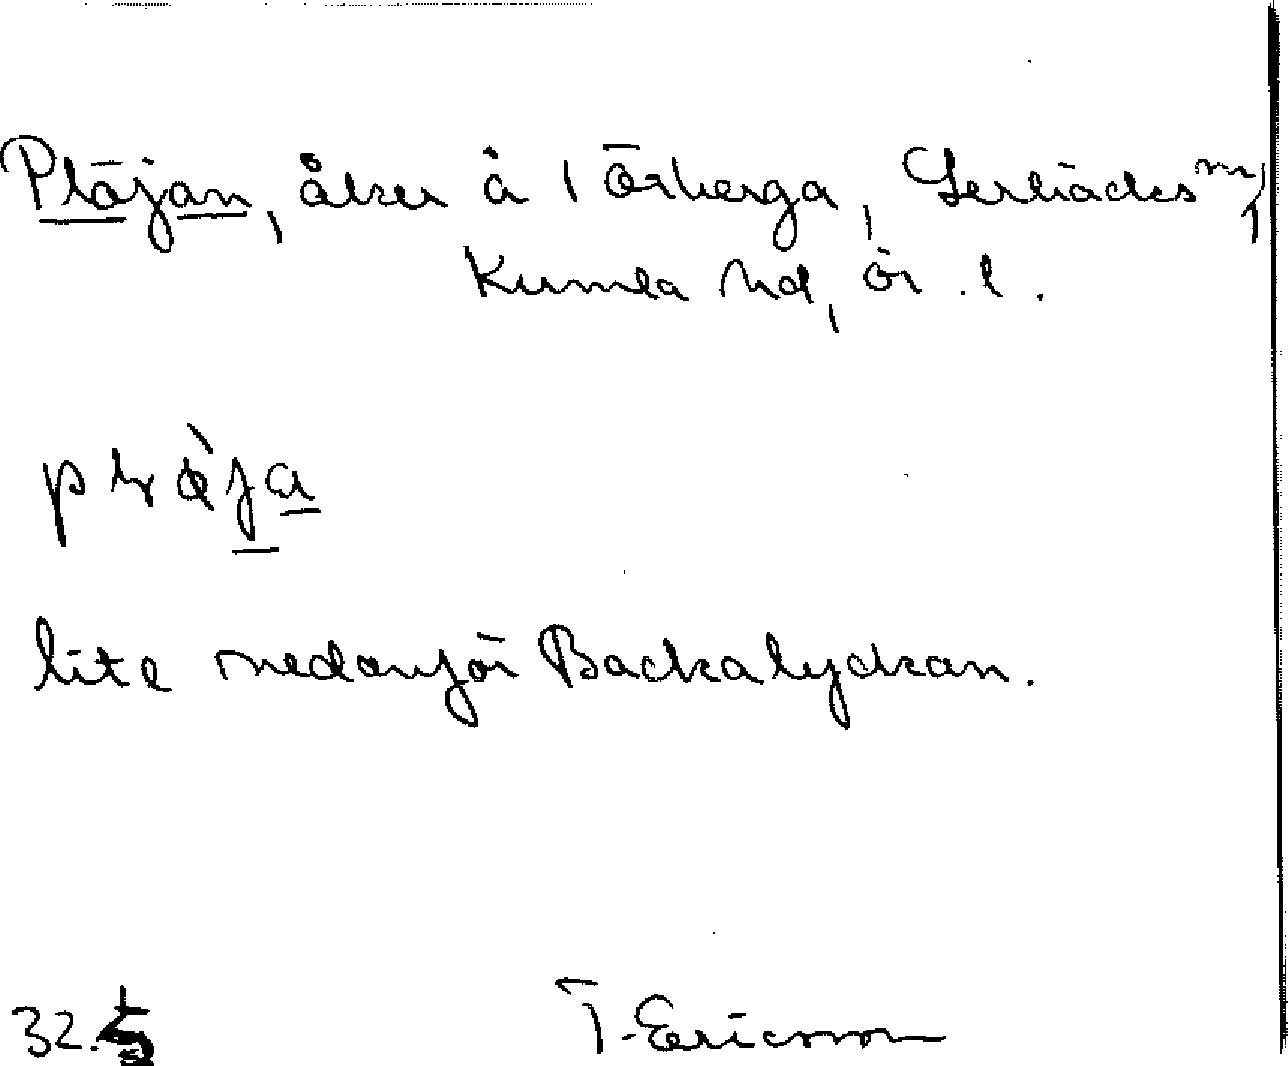 Plöjan, åker å 1 Örberga, Lerbäcks sn,
Kumla hd, Ör. l.
lite nedanför Backalyckan.
32.
T. Ericsson